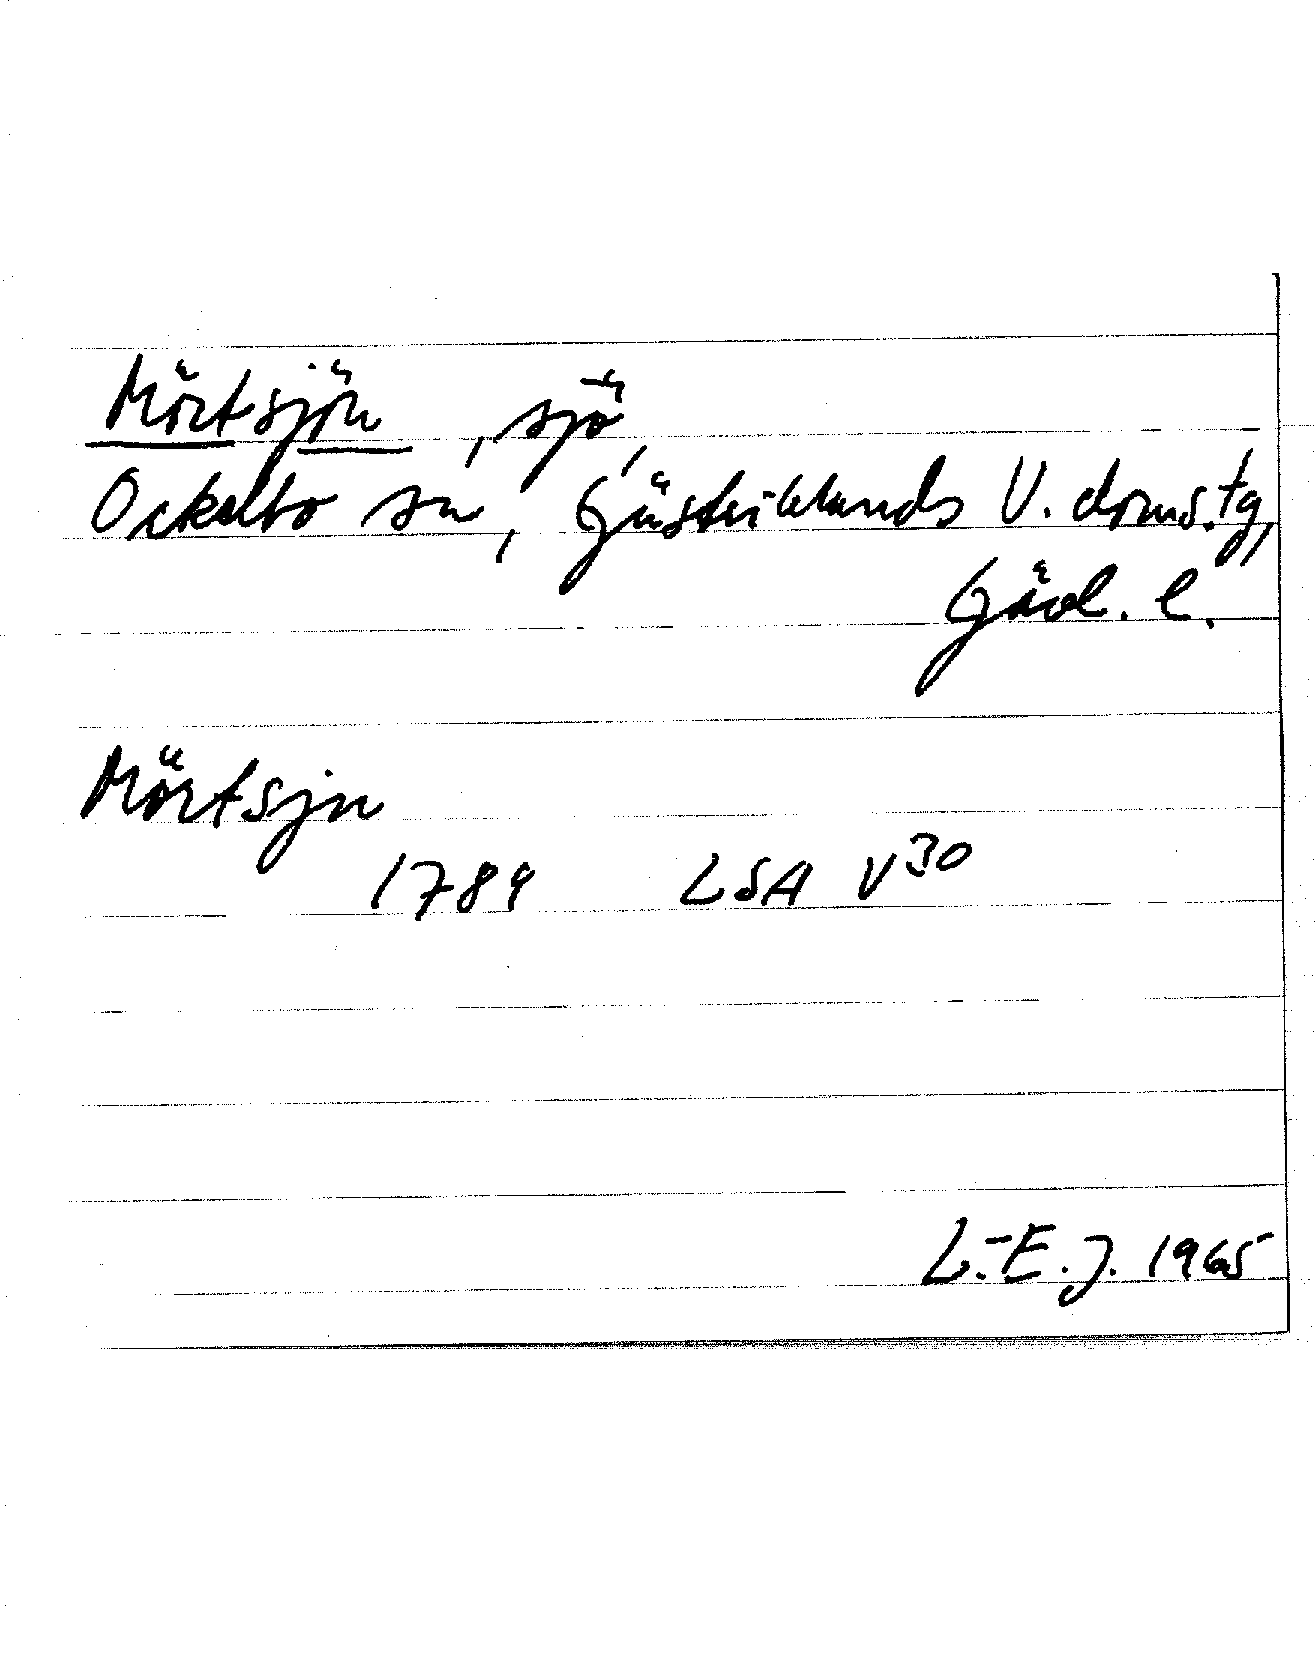 Mörtsjön, sjö,
Ockelbo sn, Gästriklands V. doms.tg,
Gävl. l.
Mörtsjn
1789 LSA V30
L.-E. J. 1965